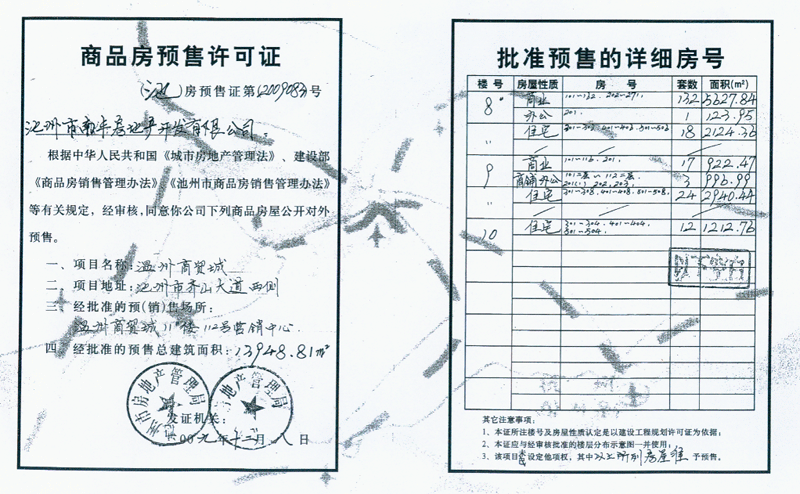 商品房预售许可证
(池)房预售证第(2009083)号
池州市南华房地产开发有限公司：
根据中华人民共和国《城市房地产管理法》、建设部
《商品房销售管理办法》、《池州市商品房销售管理办法》
等有关规定，经审核，同意你公司下列商品房屋公开对外
预售。
一、项目名称：温州商贸城
二、项目地址：池州市齐山大道西侧
三、经批准的预(销)售场所：
温州商贸城11#楼112号营销中心.
四、经批准的预售总建筑面积：13948.81m²
发证机关：
池州市房地产管理局
房地产管理局
2009年十二月八日
批准预售的详细房号
楼号 房屋性质 房号 套数 面积(m²)
8# 商业 101-132、202-271、 132 5627.84
办公 201、 1 123.95
〃 住宅 301-303、401-403、501-503 18 2124.36
9 商业 101-116、201、 17 922.47
商铺办公 201(1) 202、203、 3 996.99
〃 住宅 301-308、401-408、501-508、 24 2940.44
10 住宅 301-304、401-404、 12 1212.76
501-504、
其它注意事项：
1、本证所注楼号及房屋性质认定是以建设工程规划许可证为依据；
2、本证应与经审核批准的楼层分布示意图一并使用；
3、该项目设定他项权，其中以上所列房屋准予预售。